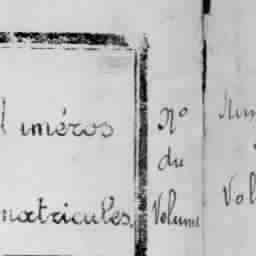 uméros
matricules.
No
du
Volume
Num
Vol